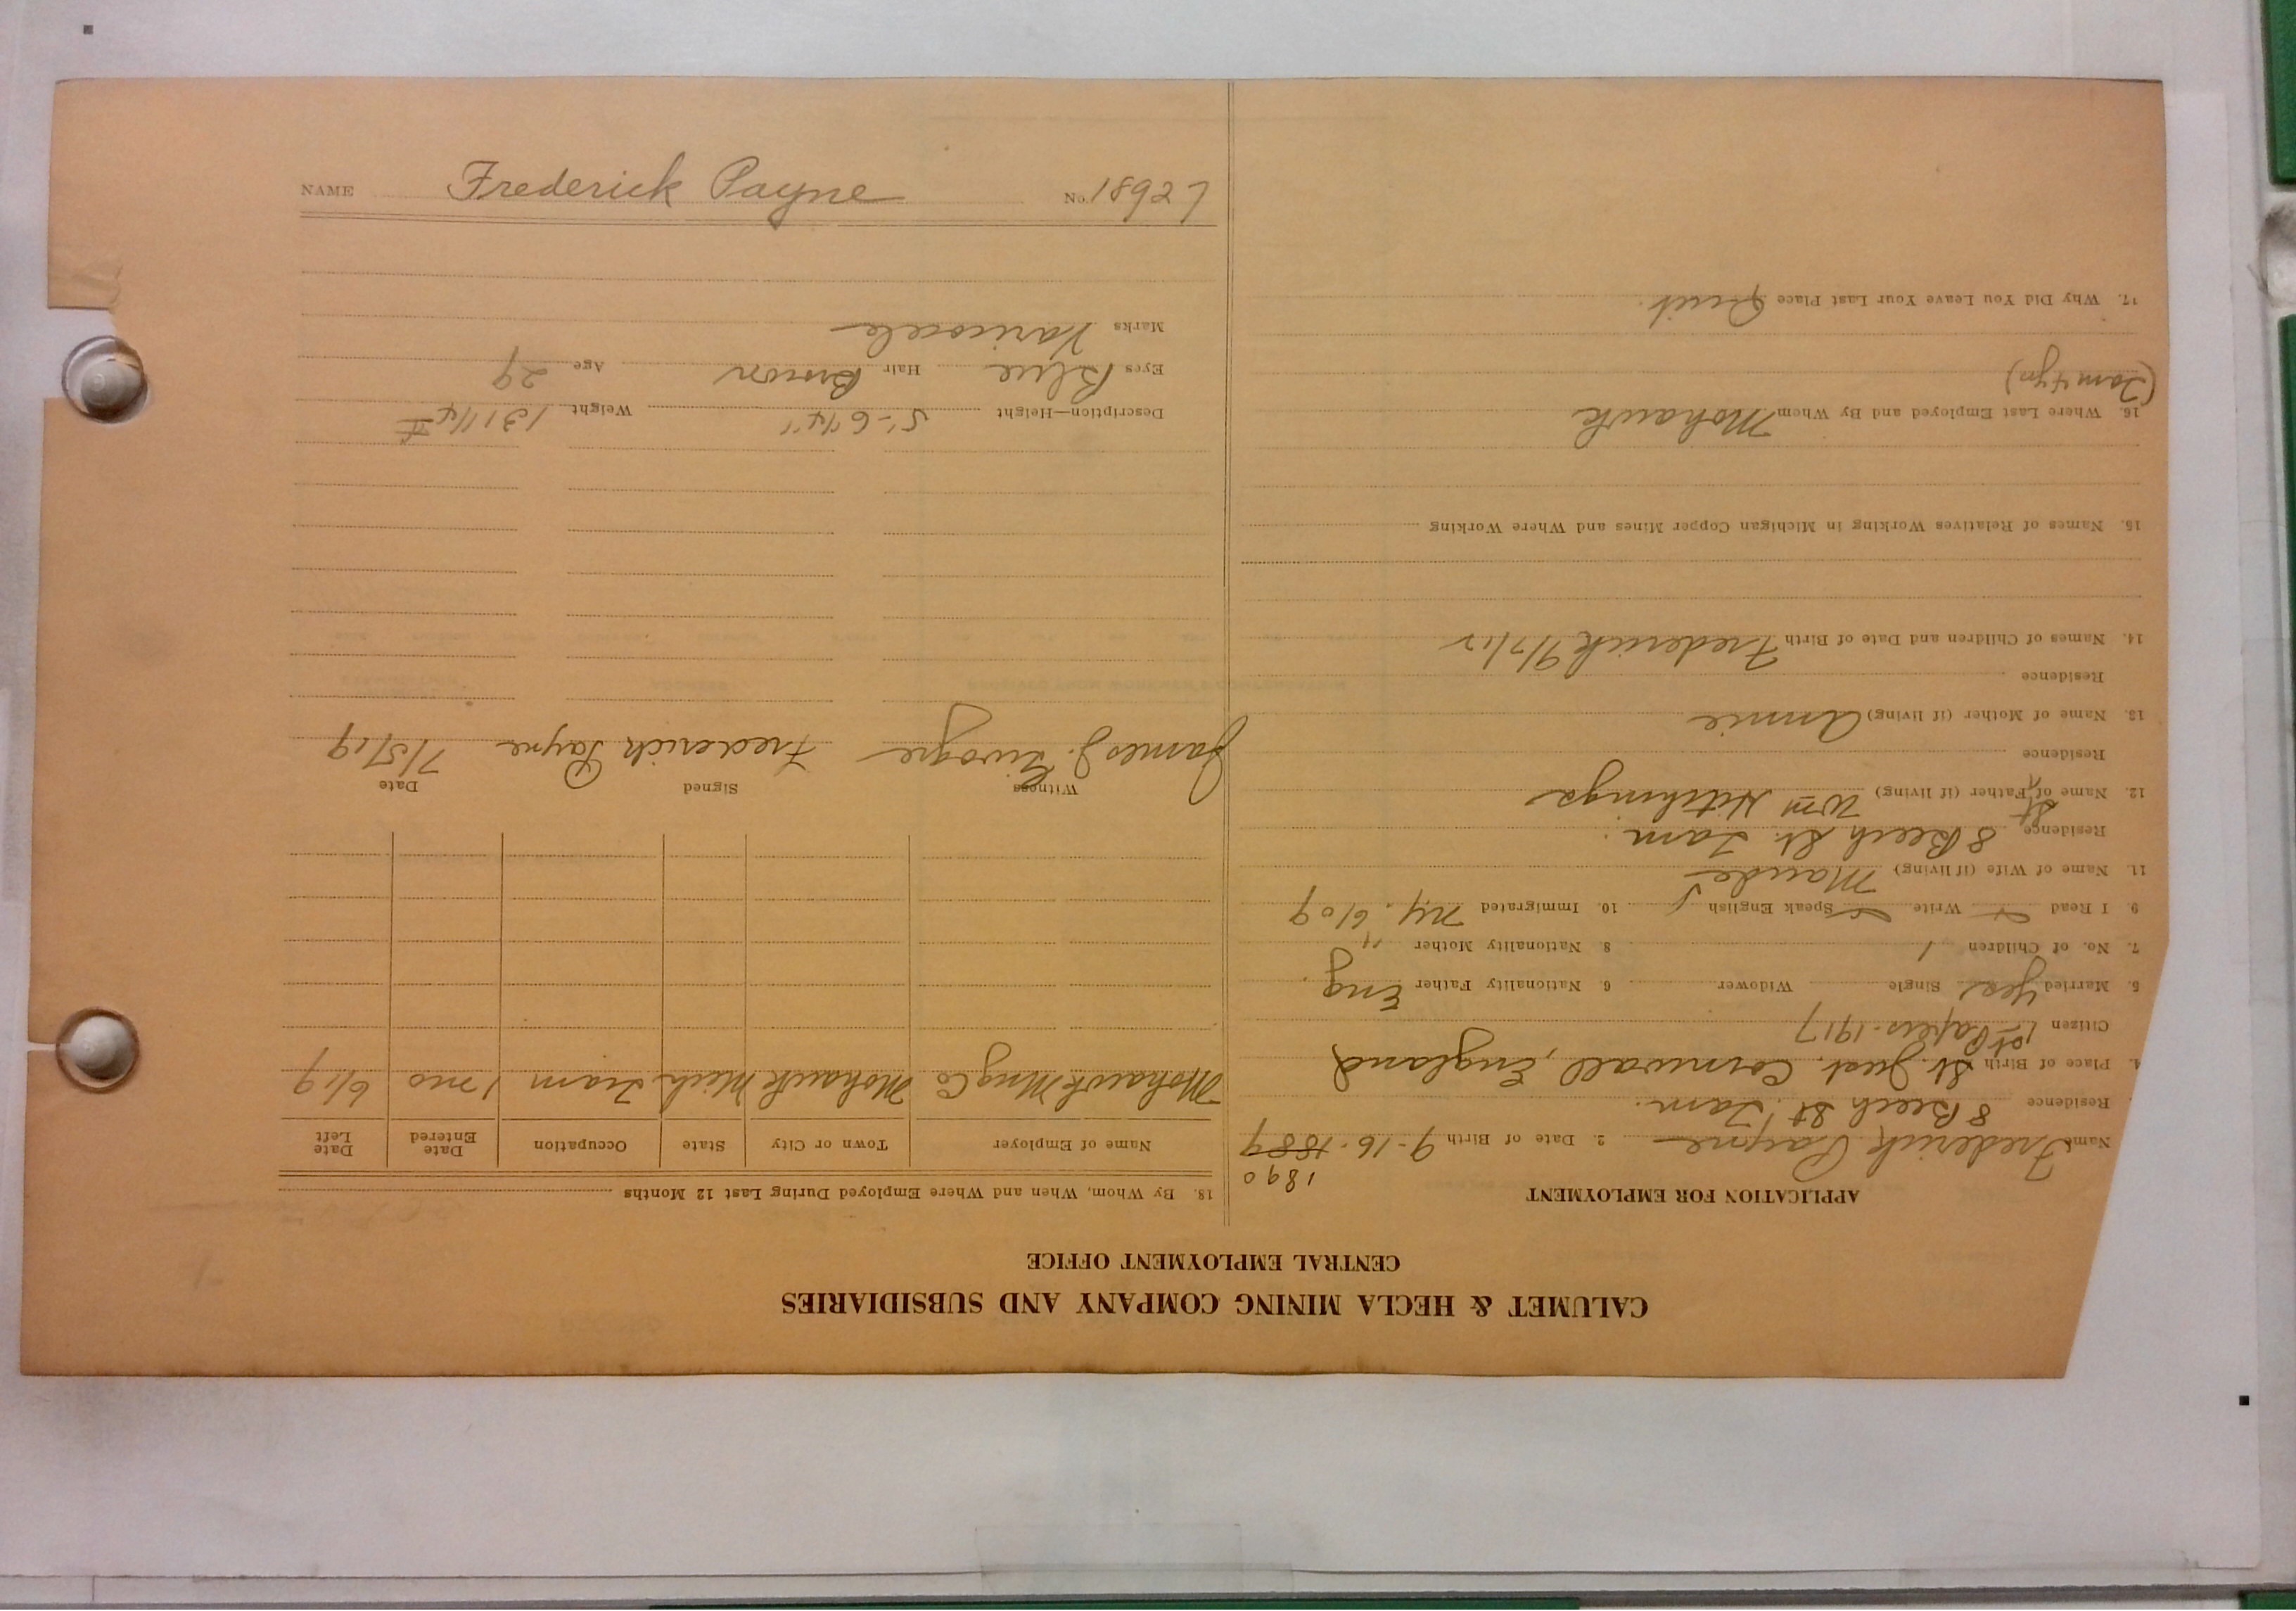 CALUMET & HECLA MINING COMPANY AND SUBSIDIARIES
CENTRAL EMPLOYMENT OFFICE
APPLICATION FOR EMPLOYMENT
1890
Name Frederick Payne 2. Date of Birth 9-16-1889
Residence 8 Beech St. Tam.
4. Place of Birth St. Just. Cornwall, England
Citizen 1st Papers-1917
5. Married Yes Single Widower 6. Nationality Father Eng.
7. No. of Children 1 8. Nationality Mother "
9 I Read Write Speak English 10. Immigrated N.Y. 6/09
11. Name of Wife (if living) Maude
Residence 8 Beech St. Tam.
12. Name of St Father (if living) Wm Hitchings
Residence
13. Name of Mother (if living) Annie
Residence
14. Names of Children and Date of Birth Frederick 9/7/17
15. Names of Relatives Working in Michigan Copper Mines and Where Working
16. Where Last Employed and By Whom Mohawk
(Tam 4 yrs)
17. Why Did You Leave Your Last Place Quit.
18. By Whom, When and Where Employed During Last 12 Months
Name of Employer Town or City State Occupation Date Entered Date Left
Mohawk Mng Co Mohawk Mich Tram 1 mo 6/19
Witness Signed Date
James J. Frederick Payne 7/5/19
Description—Height 5'-6 1/4" Weight 131 1/4 #
Eyes Blue Hair Brown Age 29
Marks Varicocele
NAME Frederick Payne No. 18927